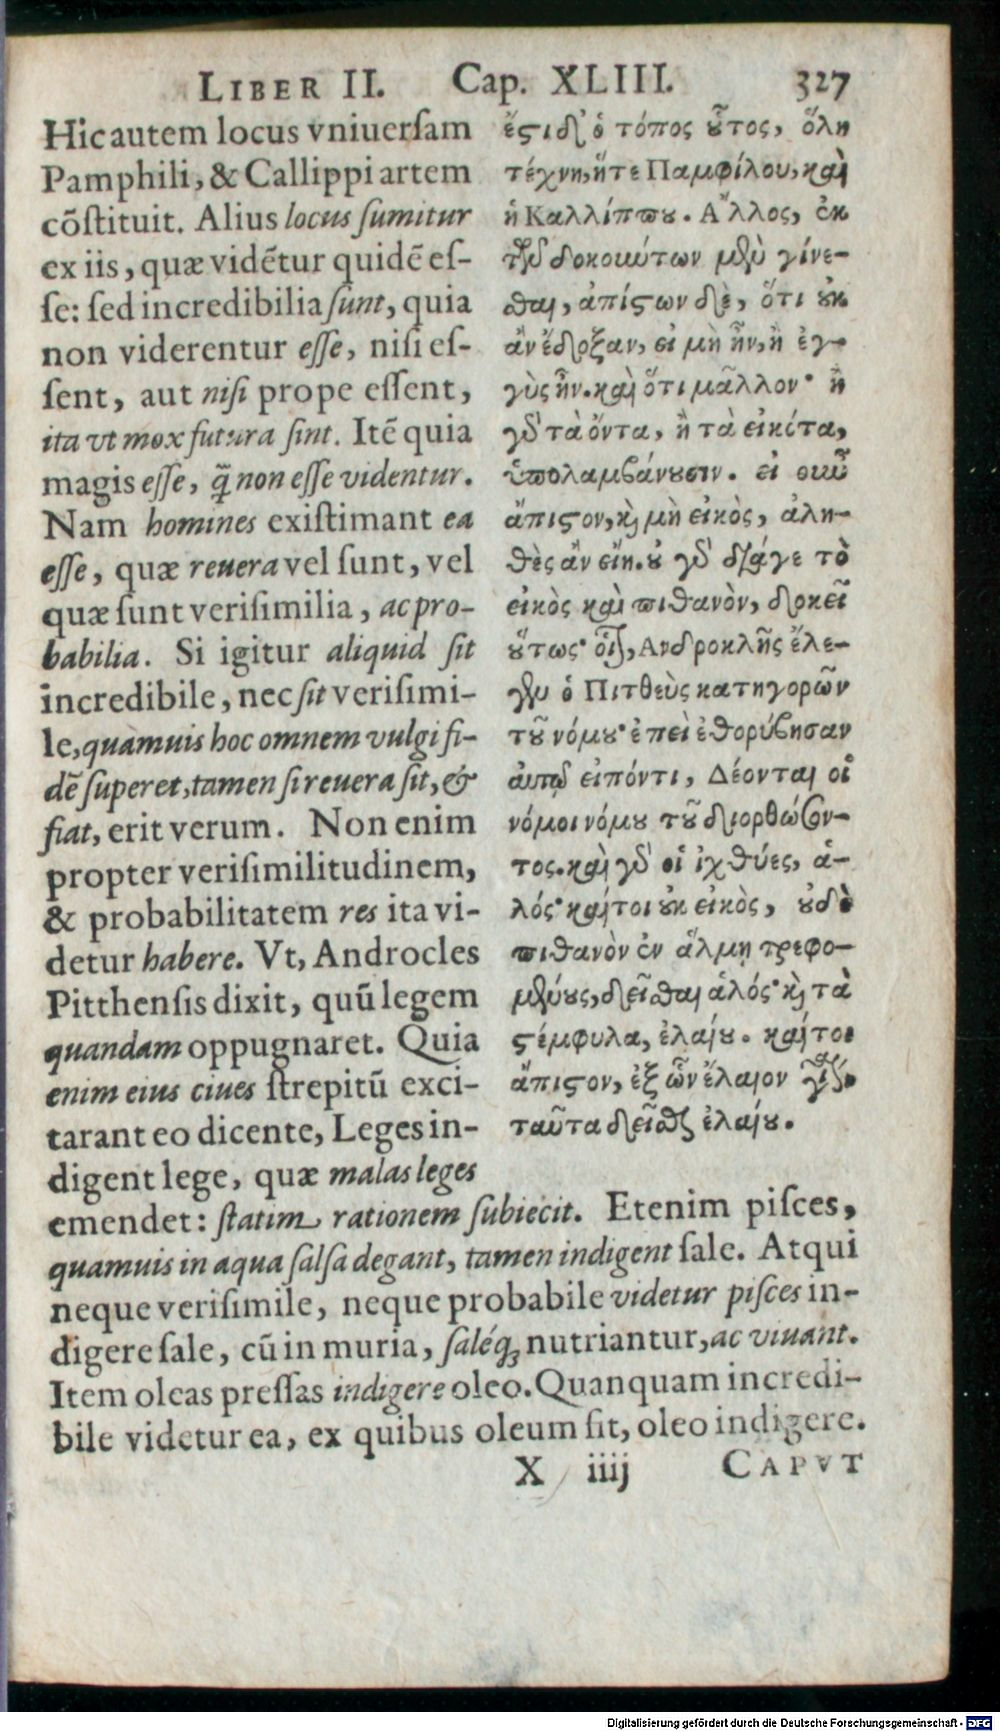 LIBER II. Cap. XLIII. 327
Hic autem locus vniuerſam
Pamphili, & Callippi artem
cõſtituit. Alius locus ſumitur
ex iis, quæ vidẽtur quidẽ eſ-
ſe: ſed incredibilia ſunt, quia
non viderentur eſſe, niſi eſ-
ſent, aut niſi prope eſſent,
ita vt mox futura ſint. Itẽ quia
magis eſſe, q̃ non eſſe videntur.
Nam homines exiſtimant ea
eſſe, quæ reuera vel ſunt, vel
quæ ſunt veriſimilia, ac pro-
babilia. Si igitur aliquid ſit
incredibile, nec ſit veriſimi-
le, quamuis hoc omnem vulgi fi-
dẽ ſuperet, tamen ſi reuera ſit, &
fiat, erit verum. Non enim
propter veriſimilitudinem,
& probabilitatem res ita vi-
detur habere. Vt, Androcles
Pitthenſis dixit, quũ legem
quandam oppugnaret. Quia
enim eius ciues ſtrepitũ exci-
tarant eo dicente, Leges in-
digent lege, quæ malas leges
ἔϛι δ' ὁ τόπος ȣ̃τος, ὅλη
τέχνη, ἥτε Παμφίλου, καὶ
ἡ Καλλίππȣ. Ἄλλος, ἐκ
τῶν δοκούντων μὲν γίνε-
σθαι, ἀπίϛων δὲ, ὅτι ȣκ
ἂν ἔδοξαν, εἰ μὴ ἦν, ἢ ἐγ-
γὺς ἦν. καὶ ὅτι μᾶλλον· ἢ
γὸ τὰ ὄντα, ἢ τὰ εἰκότα,
ὑπολαμβάνȣσιν. εἰ οὖν
ἄπιϛον, κ̀ μὴ εἰκὸς, ἀλη-
θὲς ἂν εἴη. ȣ γὸ διάγε τὸ
εἰκὸς καὶ πιθανὸν, δοκεῖ
ȣ̔́τως· οἷον, Ανδροκλῆς ἔλε-
γεν ὁ Πιτθεὺς κατηγορῶν
τȣ̃ νόμȣ· ἐπεὶ ἐθορύβησαν
αὐτῷ εἰπόντι, Δέονται οἱ
νόμοι νόμȣ τȣ̃ διορθώσον-
τος. καὶ γὸ οἱ ἰχθύες, ἁ-
λός· καίτοι ȣκ εἰκὸς, ȣδὲ
πιθανὸν ἐν ἅλμῃ τρεφο-
μένȣς, δεῖσθαι ἁλός· κ̀ τὰ
ϛέμφυλα, ἐλαίȣ. καίτοι
ἄπιϛον, ἐξ ὧν ἔλαιον γίνεται
ταῦτα δεῖσθαι ἐλαίȣ.
emendet: ſtatim rationem ſubiecit. Etenim piſces,
quamuis in aqua ſalſa degant, tamen indigent ſale. Atqui
neque veriſimile, neque probabile videtur piſces in-
digere ſale, cũ in muria, ſaléq; nutriantur, ac viuant.
Item oleas preſſas indigere oleo. Quanquam incredi-
bile videtur ea, ex quibus oleum fit, oleo indigere.
X iiij CAPVT
Digitalisierung gefördert durch die Deutsche Forschungsgemeinschaft - DFG